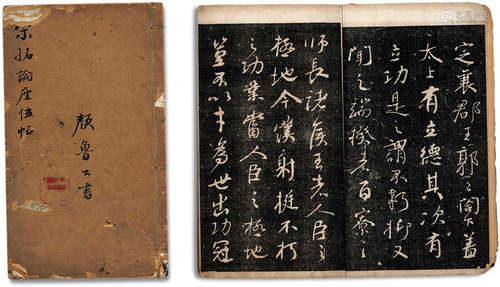 宋拓論座位帖
顏魯公書
定襄郡王郭公閣下蓋
太上有立德其次有
立功是之謂不朽抑又
聞之端揆者百寮之
師長諸侯王者人臣之
極地今僕射挺不朽
之功業當人臣之極地
豈不以才為世出功冠